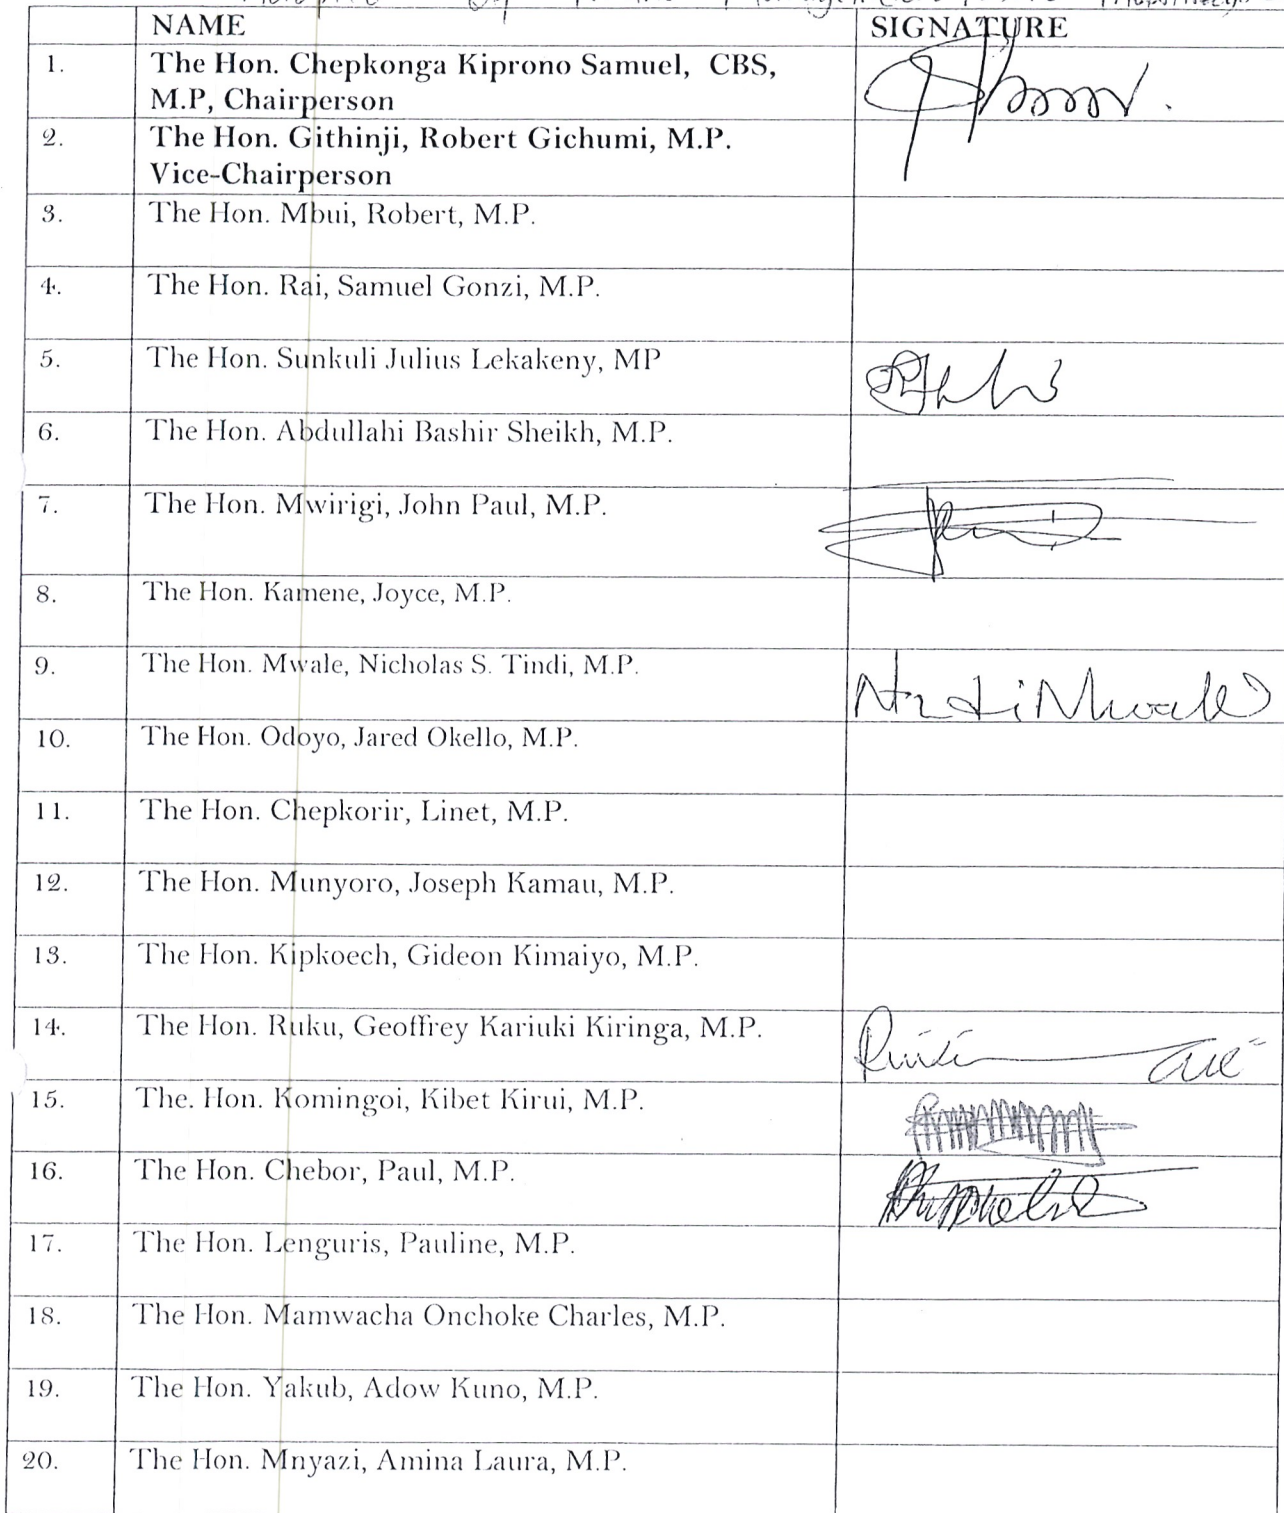 NAME SIGNATURE
1. The Hon. Chepkonga Kiprono Samuel, CBS,
M.P, Chairperson
2. The Hon. Githinji, Robert Gichumi, M.P.
Vice-Chairperson
3. The Hon. Mbui, Robert, M.P.
4. The Hon. Rai, Samuel Gonzi, M.P.
5. The Hon. Sunkuli Julius Lekakeny, MP
6. The Hon. Abdullahi Bashir Sheikh, M.P.
7. The Hon. Mwirigi, John Paul, M.P.
8. The Hon. Kamene, Joyce, M.P.
9. The Hon. Mwale, Nicholas S. Tindi, M.P.
10. The Hon. Odoyo, Jared Okello, M.P.
11. The Hon. Chepkorir, Linet, M.P.
12. The Hon. Munyoro, Joseph Kamau, M.P.
13. The Hon. Kipkoech, Gideon Kimaiyo, M.P.
14. The Hon. Ruku, Geoffrey Kariuki Kiringa, M.P.
15. The. Hon. Komingoi, Kibet Kirui, M.P.
16. The Hon. Chebor, Paul, M.P.
17. The Hon. Lenguris, Pauline, M.P.
18. The Hon. Mamwacha Onchoke Charles, M.P.
19. The Hon. Yakub, Adow Kuno, M.P.
20. The Hon. Mnyazi, Amina Laura, M.P.